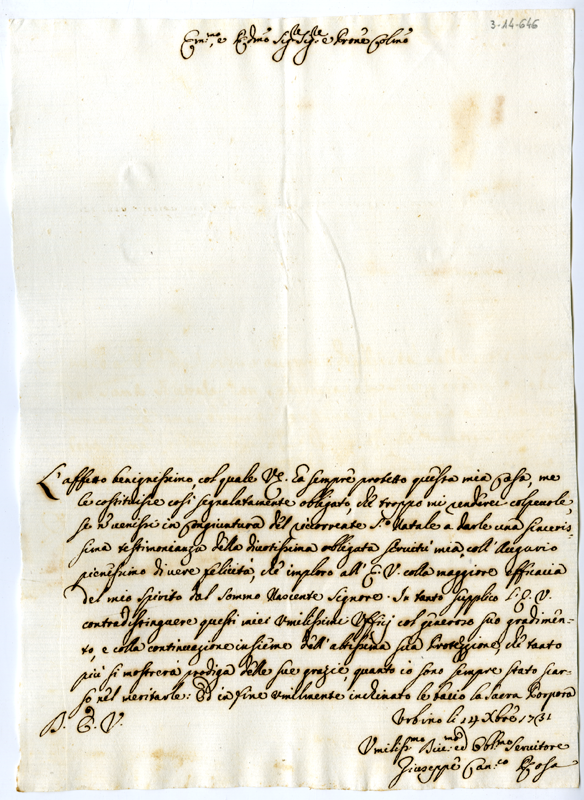 3-14-646
Em.mo, e R.mo Sig.re Sig.re e Prone Colmo
L'affetto benignissimo, col quale V.E. ha sempre protetto questa mia Casa, me
le costituisce così segnalatamente obligato, che troppo mi renderei colpeuole,
se nò venissi in congiuntura del ricorrente S.o Natale a darle una sinceris-
sima testimonianza della diuotissima obligata seruitù mia coll'Augurio
pienissimo di vere felicità, che imploro all'E.V. colla maggiore efficacia
del mio spirito dal Sommo Nascente Signore. In tanto supplico l'E.V.
contradistinguere questi miei Vmilissimi Vfficij col generoso suo gradimen-
to, e colla continuazione insieme dell'altissima sua Protezzione, che tanto
più si mostrerà prodiga delle sue grazie, quanto io sono sempre stato scar-
so nel meritarle: Ed in fine vmilmente inchinato le bacio la Sacra Porpora
D. E. V.
Vrbino li 14 Xbre 1731
Vmiliss.mo Diu.mo ed Obl.mo Seruitore
Giuseppe Can.co Rosa